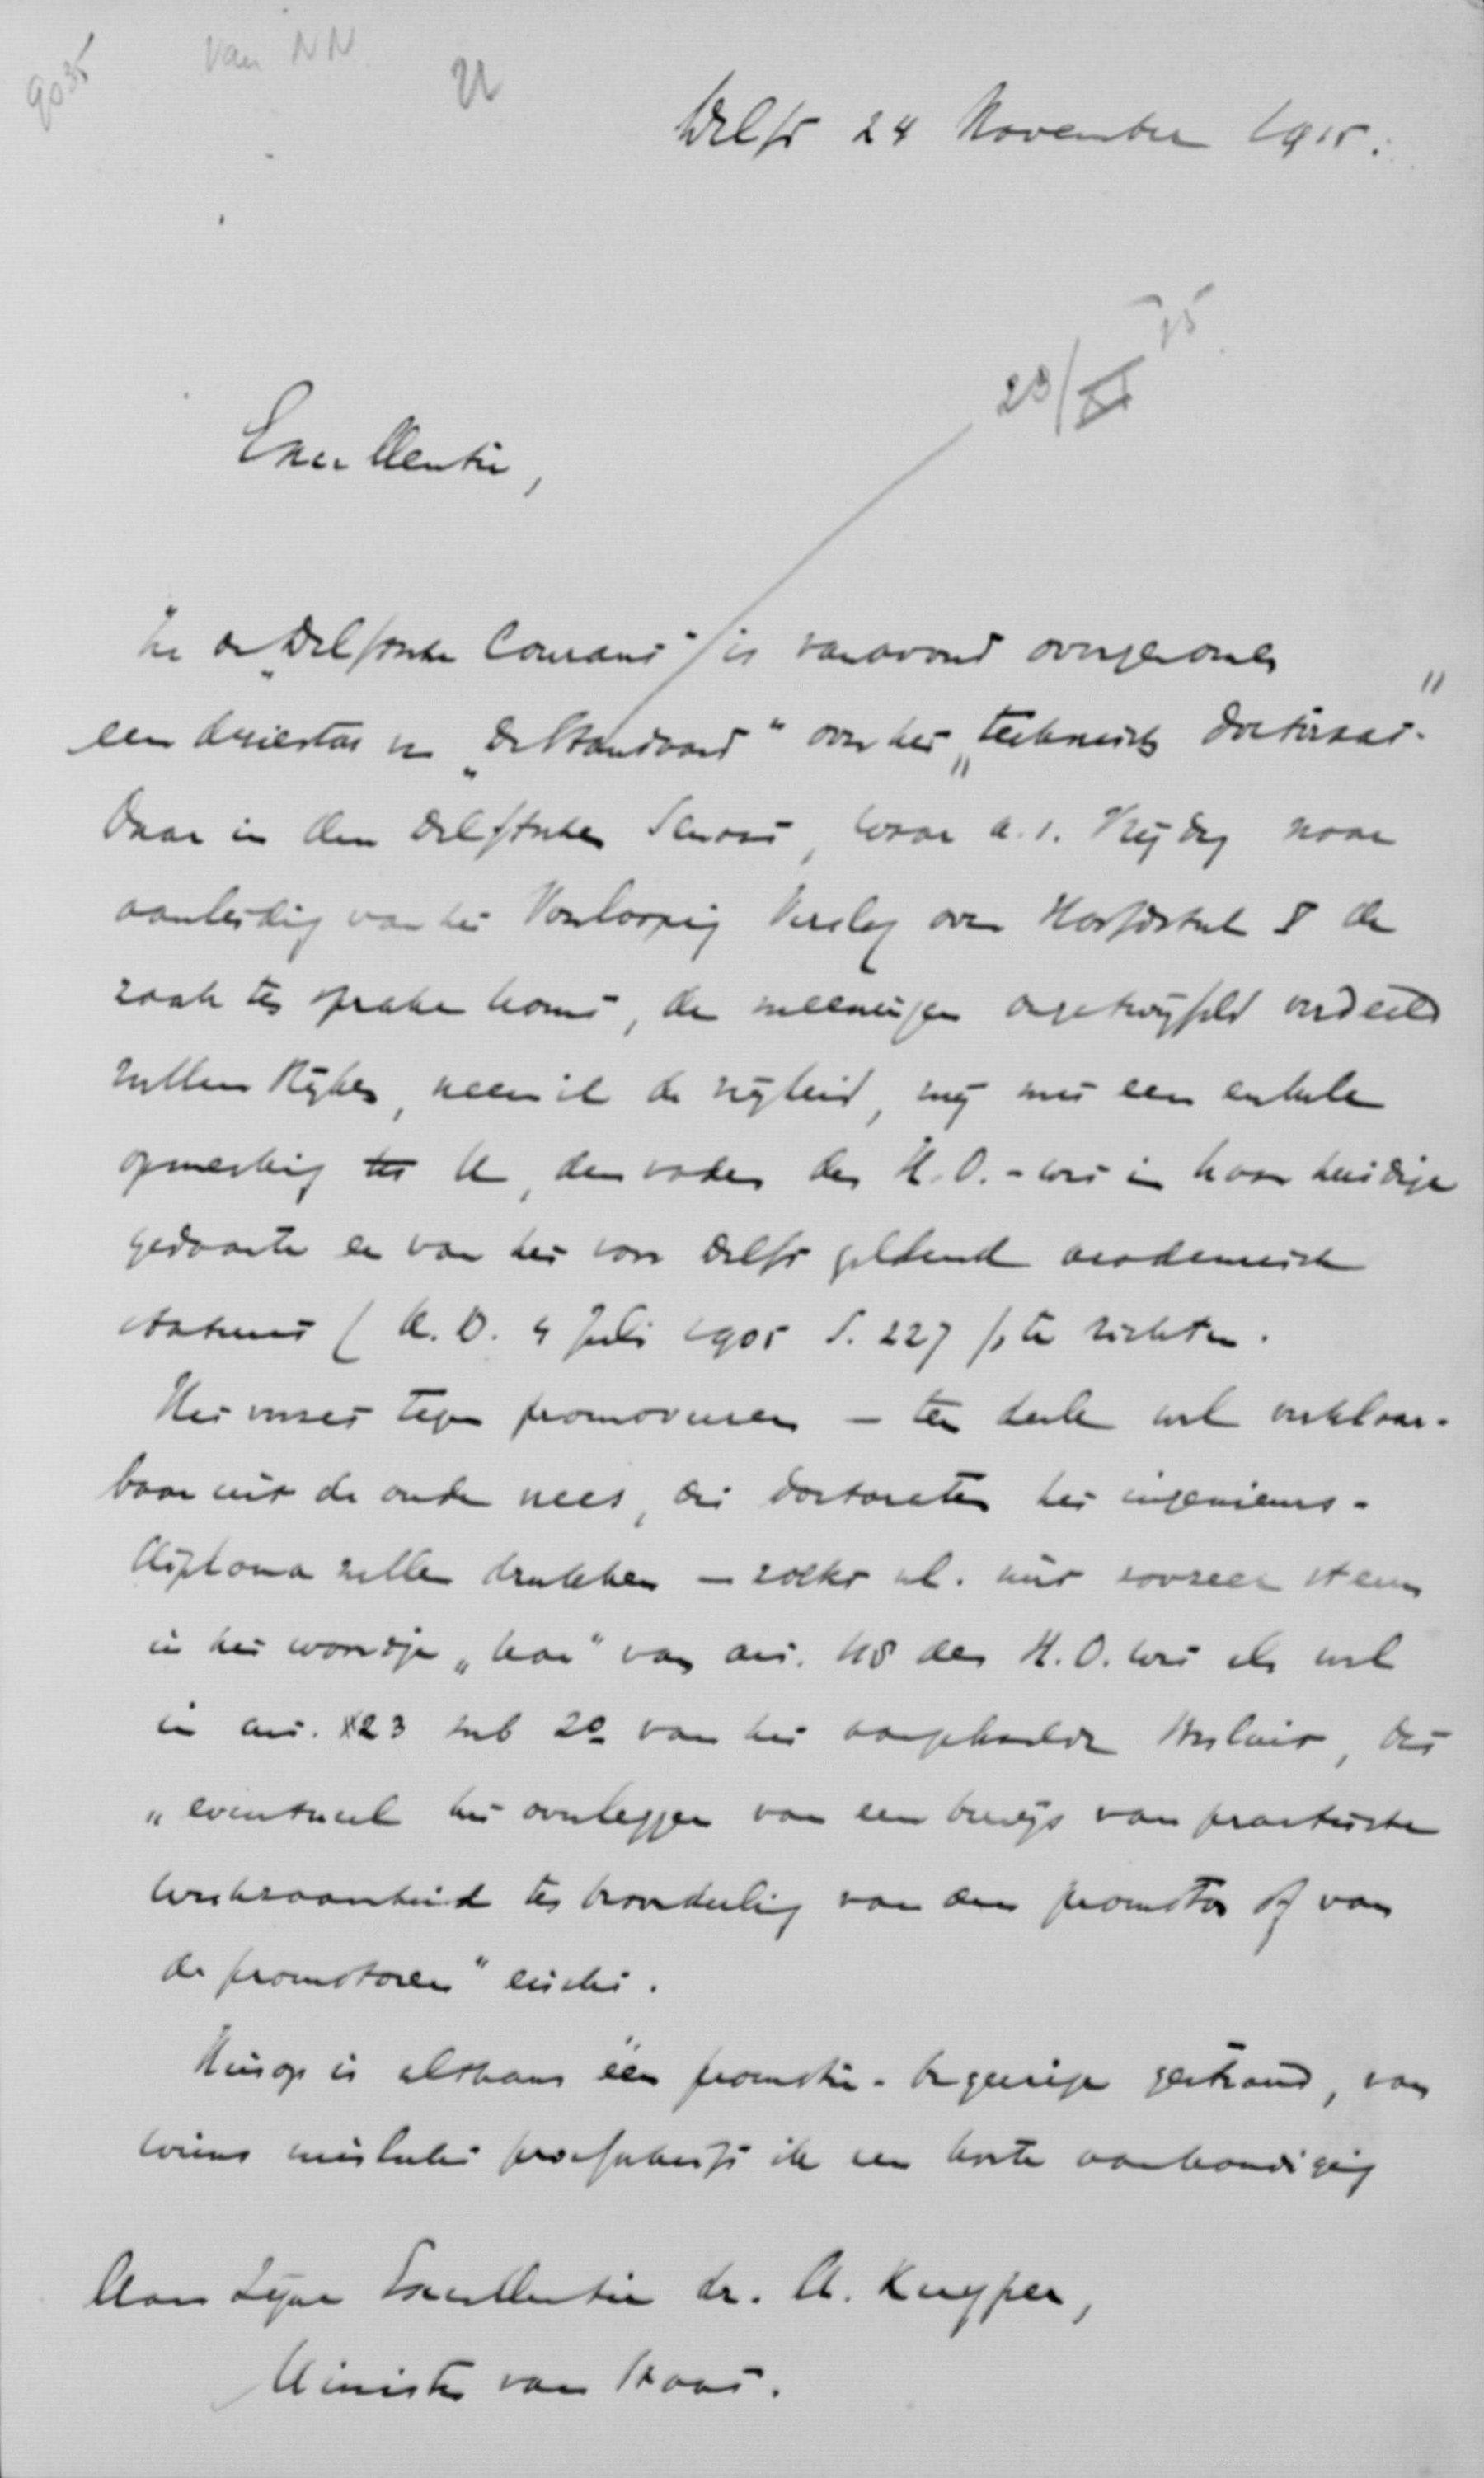 9035
van NN
Delft 24 November 1915.
23/XI 15
Excellentie,
In de „Delftsche Courant" is vanavond overgenomen
een driestar in „De Standaard" over het „technisch doctoraat".
Daar in den Delftschen Senaat, waar a.s. Vrijdag naar
aanleiding van het Voorloopig Verslag over Hoofdstuk V de
zaak ter sprake komt, de meeningen ongetwijfeld verdeeld
zullen blijken, neem ik de vrijheid, mij met een enkele
opmerking tot U, den vader der H.O.-wet in haar huidige
gedaante en van het voor Delft geldend academisch
statuut (K.B. 4 Juli 1905 S. 227), te richten.
Het verzet tegen promoveeren — ten deele wel verklaar-
baar uit de oude vrees, die doctoraten het ingenieurs-
diploma zullen drukken — zoekt nl. niet zoozeer steun
in het woordje „kan" van art. 118 der H.O. wet als wel
in art. 23 sub 2º van het aangehaalde Besluit, dat
„eventueel het overleggen van een bewijs van practische
werkzaamheid ter beoordeeling van den promotor of van
de promotoren" eischt.
Hierop is althans één promotie-begeerige gestrand, van
wiens mislukt proefschrift ik een korte aankondiging
Aan Zijne Excellentie dr. A. Kuyper,
Minister van Staat.